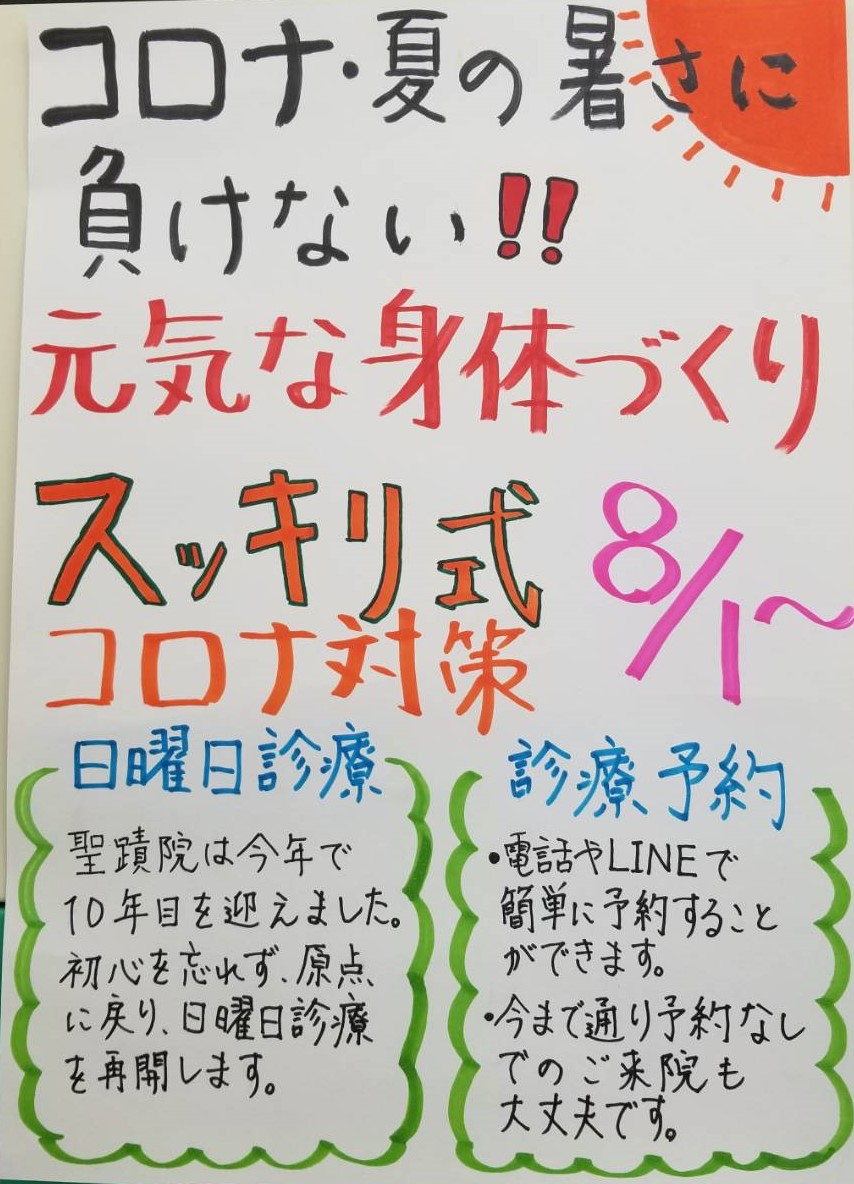 コロナ・夏の暑さに
負けない!!
元気な身体づくり
スッキリ式
8/1〜
コロナ対策
日曜日診療
聖蹟院は今年で
10年目を迎えました。
初心を忘れず、原点
に戻り、日曜日診療
を再開します。
診療予約
・電話やLINEで
簡単に予約すること
ができます。
・今まで通り予約なし
でのご来院も
大丈夫です。